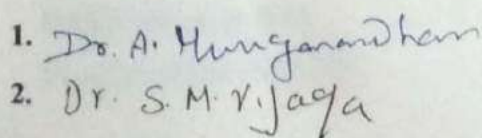 1. Dr. A. Muruganandham
2. Dr. S. M. Vijaya